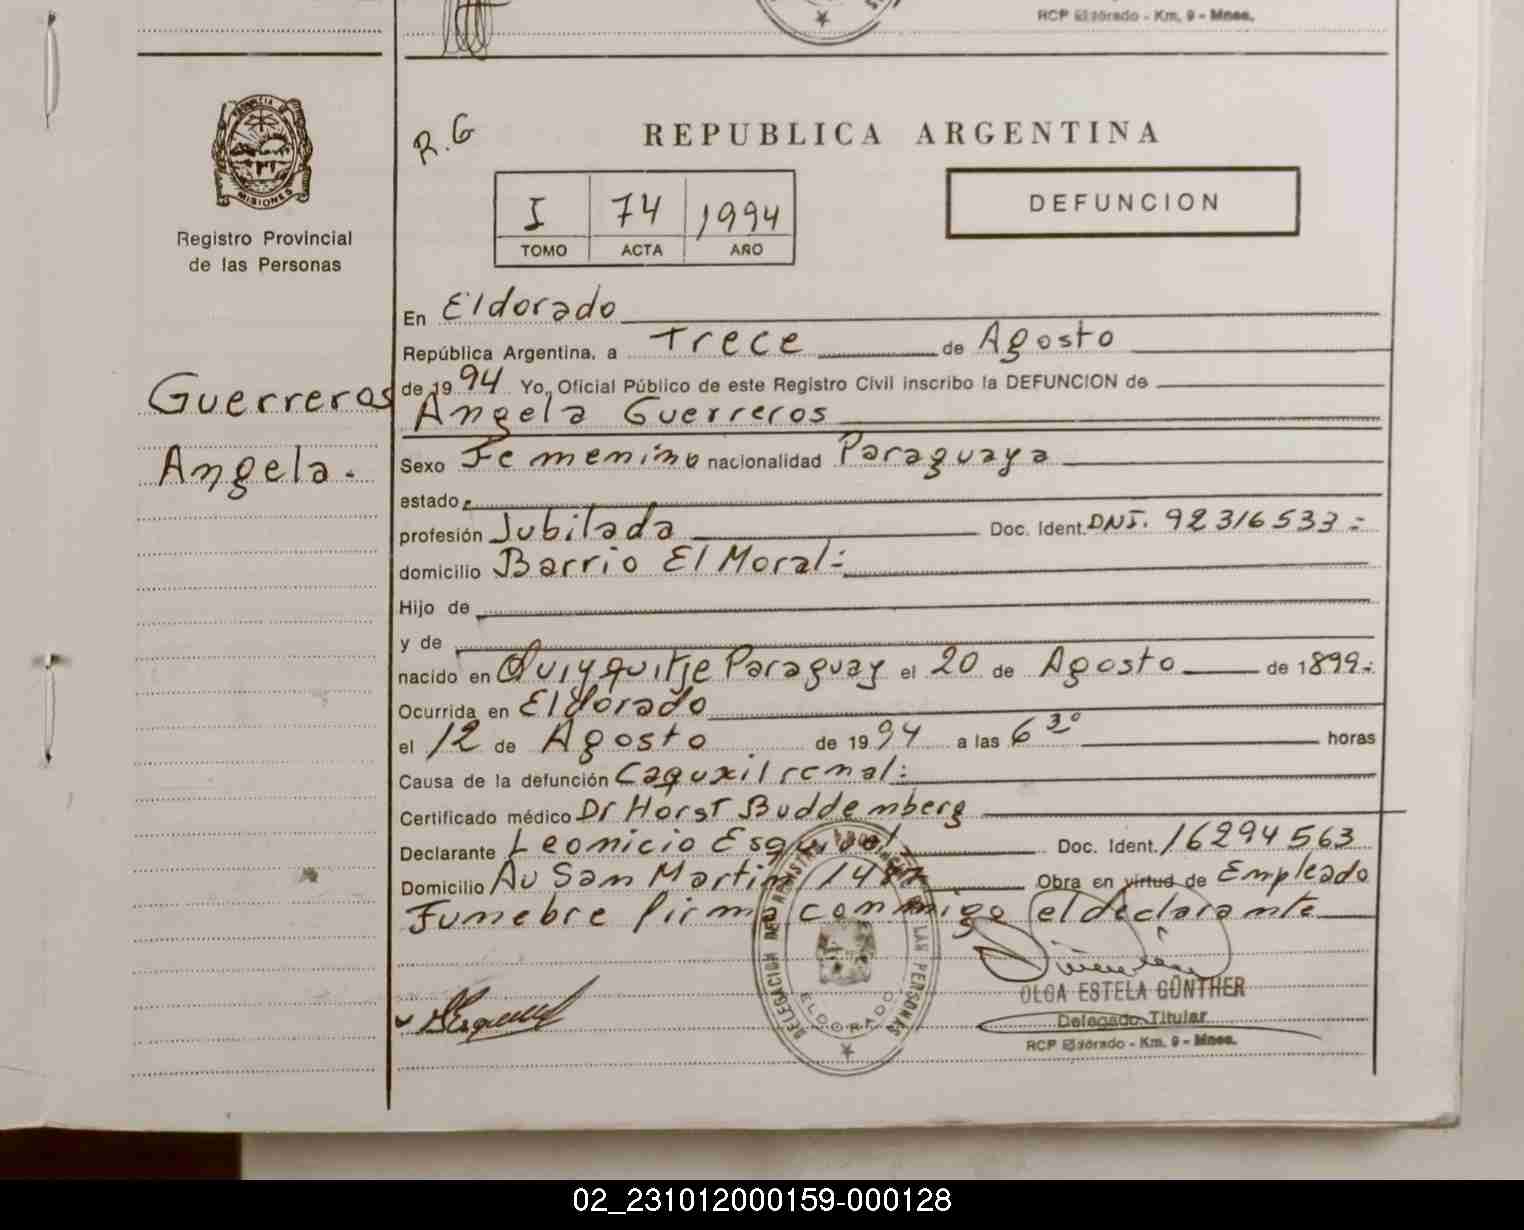 RCP Eldorado - Km. 9 - Mnes.
PROVINCIA DE
MISIONES
Registro Provincial
de las Personas
Guerreros
Angela.
R.G
REPUBLICA ARGENTINA
I 74 1994
TOMO ACTA AÑO
DEFUNCION
En Eldorado
República Argentina, a Trece de Agosto
de 1994 Yo, Oficial Público de este Registro Civil inscribo la DEFUNCION de
Angela Guerreros
Sexo Femenino nacionalidad Paraguaya
estado
profesión Jubilada Doc. Ident. DNI. 92316533=
domicilio Barrio El Moral:
Hijo de
y de
nacido en Quiyquitje Paraguay el 20 de Agosto de 1899.
Ocurrida en Eldorado
el 12 de Agosto de 1994 a las 6 30 horas
Causa de la defunción renal:
Certificado médico Dr Horst Buddemberg
Declarante Leonicio Esquivel Doc. Ident. 16294563
Domicilio Av San Martin Obra en virtud de Empleado
Funebre firma conmigo el declarante
DELEGACION DEL REGISTRO PROVINCIAL DE LAS PERSONAS
ELDORADO
OLGA ESTELA GÜNTHER
Delegado Titular
RCP Eldorado - Km. 9 - Mnes.
02_231012000159-000128